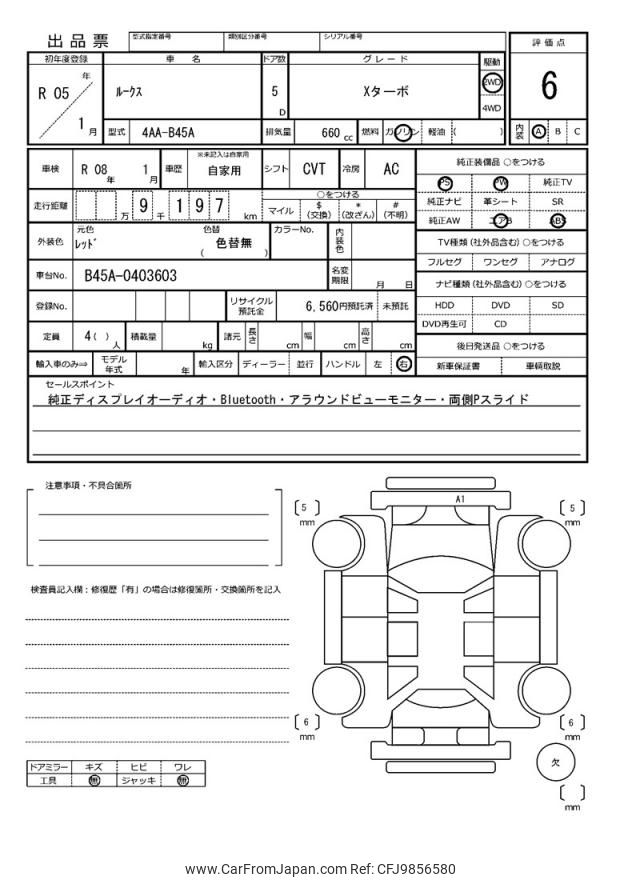 出品票
型式指定番号 類別区分番号 シリアル番号
評価点
6
内装 A B C
初年度登録 車名 ドア数 グレード 駆動
R 05 年 1 月
ルークス
5 D
Xターボ
2WD
4WD
型式 4AA-B45A 排気量 660 cc 燃料 ガソリン 軽油 ( )
車検 R 08 年 1 月 車歴 ※未記入は自家用 自家用 シフト CVT 冷房 AC
走行距離 万 9 千 1 9 7 km
○をつける
マイル $ (交換) * (改ざん) # (不明)
外装色 元色 レッド 色替 ( 色替無 ) カラーNo. 内装色
車台No. B45A-0403603 名変期限 月 日
登録No. リサイクル預託金 6,560円預託済 未預託
定員 4( ) 人 積載量 kg 諸元 長さ cm 幅 cm 高さ cm
輸入車のみ⇒ モデル年式 年 輸入区分 ディーラー 並行 ハンドル 左 右
純正装備品 ○をつける
PS PW 純正TV
純正ナビ 革シート SR
純正AW エアB ABS
TV種類 (社外品含む) ○をつける
フルセグ ワンセグ アナログ
ナビ種類 (社外品含む) ○をつける
HDD DVD SD
DVD再生可 CD
後日発送品 ○をつける
新車保証書 車輌取説
セールスポイント
純正ディスプレイオーディオ・Bluetooth・アラウンドビューモニター・両側Pスライド
注意事項・不具合箇所
検査員記入欄：修復歴「有」の場合は修復箇所・交換箇所を記入
ドアミラー キズ ヒビ ワレ
工具 無 ジャッキ 無
A1
5 mm
5 mm
6 mm
6 mm
欠
mm
www.CarFromJapan.com Ref: CFJ9856580